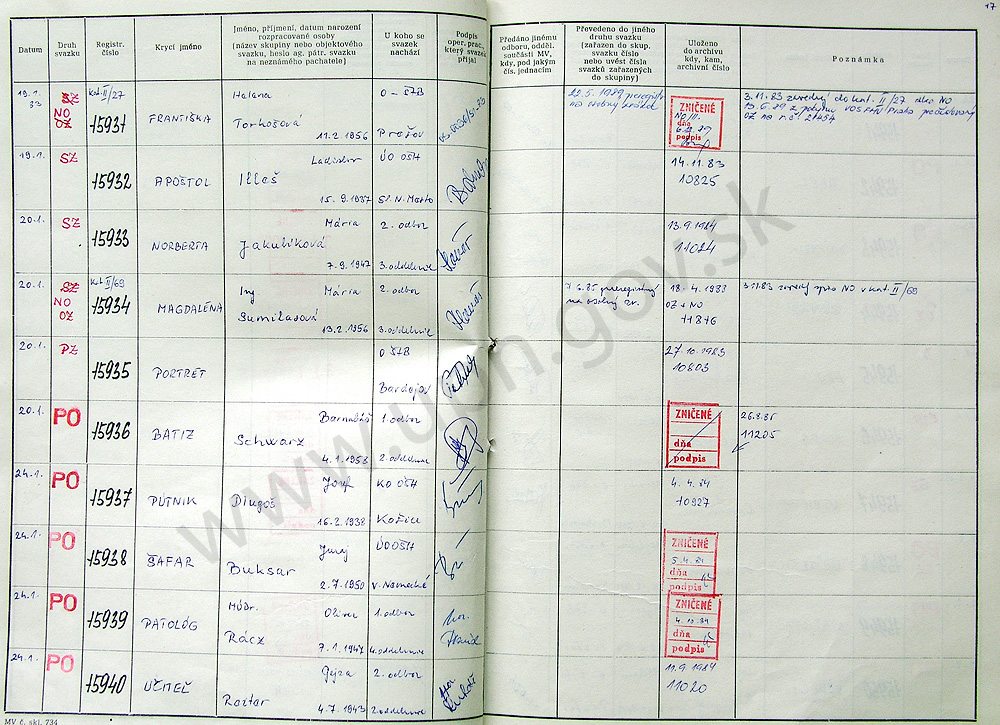 17
Datum
Druh
svazku
Registr.
číslo
Krycí jméno
Jméno, příjmení, datum narození
rozpracované osoby
(název skupiny nebo objektového
svazku, heslo ag. pátr. svazku
na neznámého pachatele)
U koho se
svazek
nachází
Podpis
oper. prac.,
který svazek
přijal
Předáno jinému
odboru, odděl.
součásti MV,
kdy, pod jakým
čís. jednacím
Převedeno do jiného
druhu svazku
(zařazen do skup.
svazku číslo
nebo uvést čísla
svazků zařazených
do skupiny)
Uloženo
do archivu
kdy, kam,
archivní číslo
Poznámka
19.1.
83
SZ
NO
OZ
kat. II/27
15931
FRANTIŠKA
Helena
Torhošová
11.2.1956
O-ŠTB
Prešov
22.5.1989
ZNIČENÉ
dňa
podpis
3.11.83 zavedený do kat. II/27 ako NO
19.1.
SZ
15932
APOŠTOL
Ladislav
Illeš
15.9.1937
ÚO OŠH
Sl. N. Mesto
14.11.83
10825
20.1.
SZ
15933
NORBERTA
Mária
Jakubíková
7.9.1947
2. odbor
3. oddelenie
13.9.1984
11024
20.1.
SZ
NO
OZ
kat. II/69
15934
MAGDALÉNA
Ing
Mária
Sumilasová
13.2.1956
2. odbor
3. oddelenie
18.4.1988
OZ + NO
11876
3.11.83 zavedený NO v kat. II/69
20.1.
PZ
15935
PORTRÉT
O ŠTB
Bardejov
27.10.1983
10803
20.1.
PO
15936
BATIZ
Barnabáš
Schwarz
4.1.1958
1. odbor
2. oddelenie
ZNIČENÉ
dňa
podpis
26.8.85
11205
24.1.
PO
15937
PÚTNIK
Jozef
Dlugoš
16.2.1938
KO OŠH
Košice
4.4.84
10927
24.1.
PO
15938
ŠAFÁR
Juraj
Buksar
2.7.1950
ÚO OŠH
V. Nemecké
ZNIČENÉ
5.4.84
dňa
podpis
24.1.
PO
15939
PATOLÓG
MUDr.
Oliver
Rácz
7.1.1947
1. odbor
4. oddelenie
ZNIČENÉ
4.10.84
dňa
podpis
24.1.
PO
15940
UČITEĽ
Gejza
Roztar
4.7.1943
2. odbor
2. oddelenie
11.9.1984
11020
MV č. skl. 734
www.upn.gov.sk